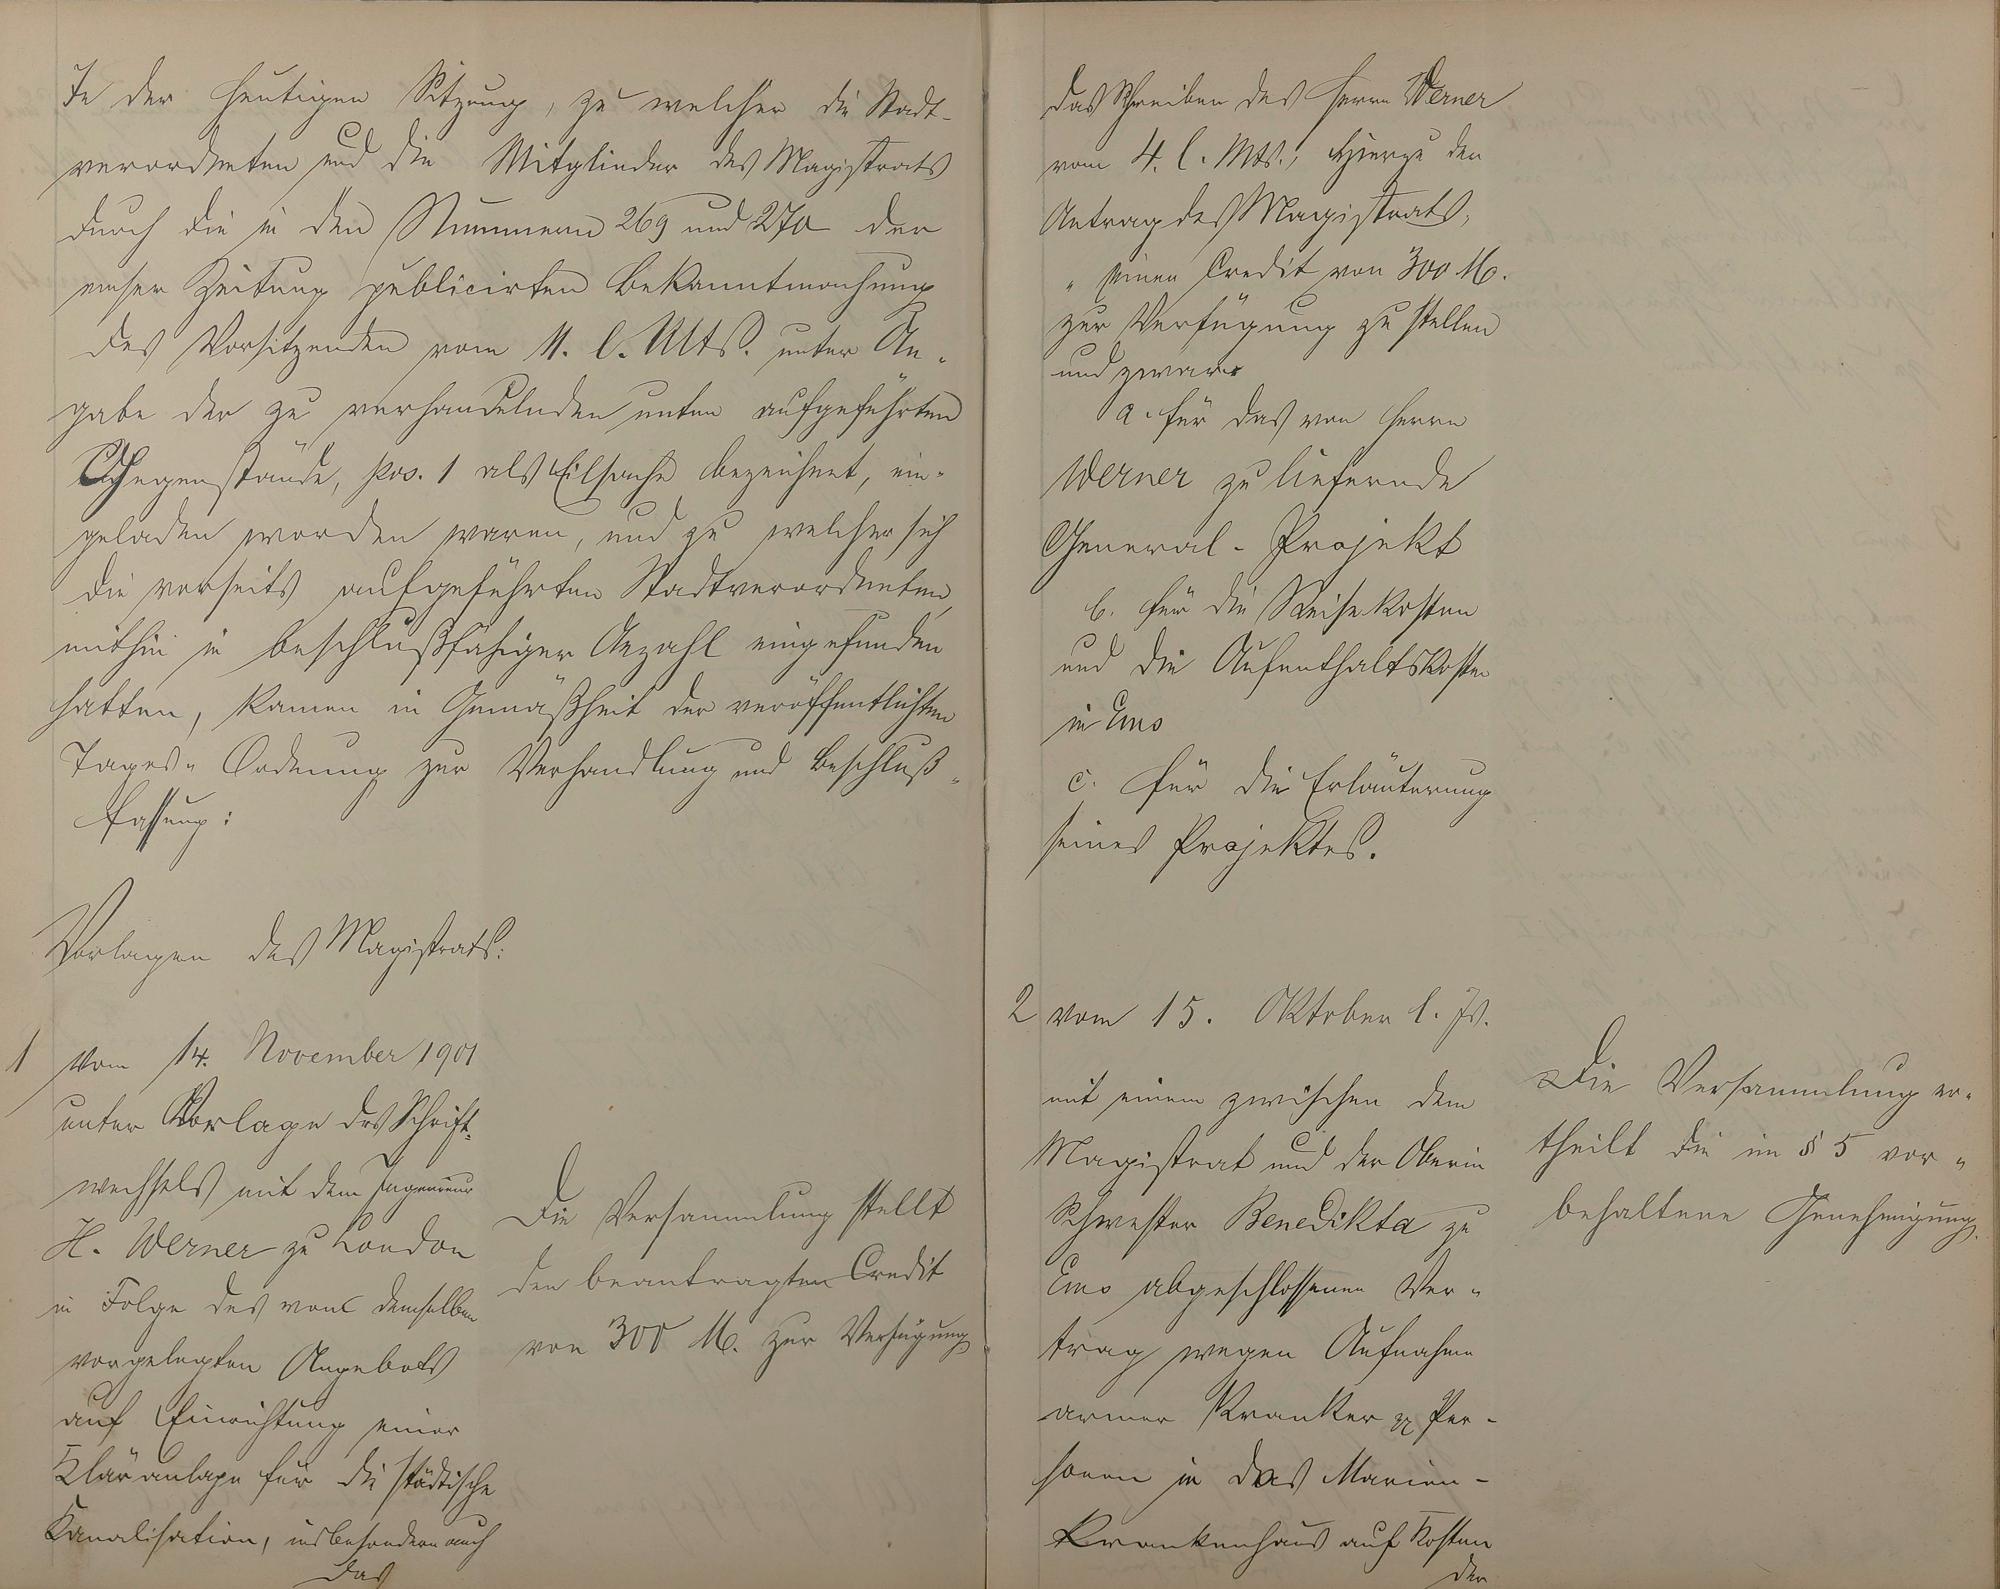 In der heutigen Sitzung, zu welcher die Stadt-
verordneten und die Mitglieder des Magistrats
durch die in den Nummern 269 und 270 der
Emser Zeitung publicirten Bekanntmachung
des Vorsitzenden vom 11. l. Mts. unter An-
gabe der zu verhandelnden unten aufgeführten
Gegenstände, pos. 1 als Eilsache bezeichnet, ein-
geladen worden waren, und zu welcher sich
die vorseits aufgeführten Stadtverordneten,
mithin in beschlußfähiger Anzahl eingefunden
hatten, kamen in Gemäßheit der veröffentlichten
Tages-Ordnung zur Verhandlung und Beschluß-
fassung:
Vorlagen des Magistrats:
1 vom 14. November 1901
unter Vorlage des Schrift-
wechsels mit dem Ingenieur
H. Werner zu London
in Folge des von demselben
vorgelegten Angebots
auf Einrichtung einer
Kläranlage für die städtische
Kanalisation, insbesondere auch
das
Die Versammlung stellt
den beantragten Credit
von 300 M. zur Verfügung
das Schreiben des Herrn Werner
vom 4. l. Mts., hierzu den
Antrag des Magistrats,
„ einen Credit von 300 M.
zur Verfügung zu stellen
und zwar
a. für das von Herrn
Werner zu liefernde
General-Projekt
b. für die Reisekosten
und die Aufenthaltskosten
in Ems
c. für die Erläuterung
seines Projektes.
2 vom 15. Oktober l. Js.
mit einem zwischen dem
Magistrat und der Oberin
Schwester Benedikta zu
Ems abgeschlossenen Ver-
trag wegen Aufnahme
armer Kranker Per-
sonen in das Marien-
Krankenhaus auf Kosten
der
Die Versammlung er-
theilt die im § 5 vor-
behaltene Genehmigung.